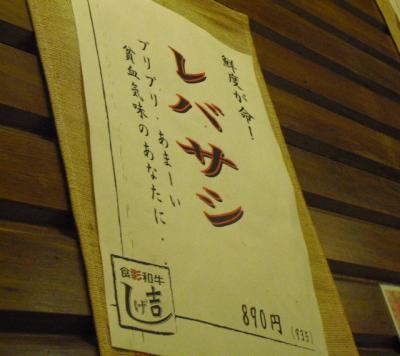 鮮度が命!
レバサシ
プリプリ・あまーい
貧血気味のあなたに・
890円
(935)
食彩和牛
しげ吉